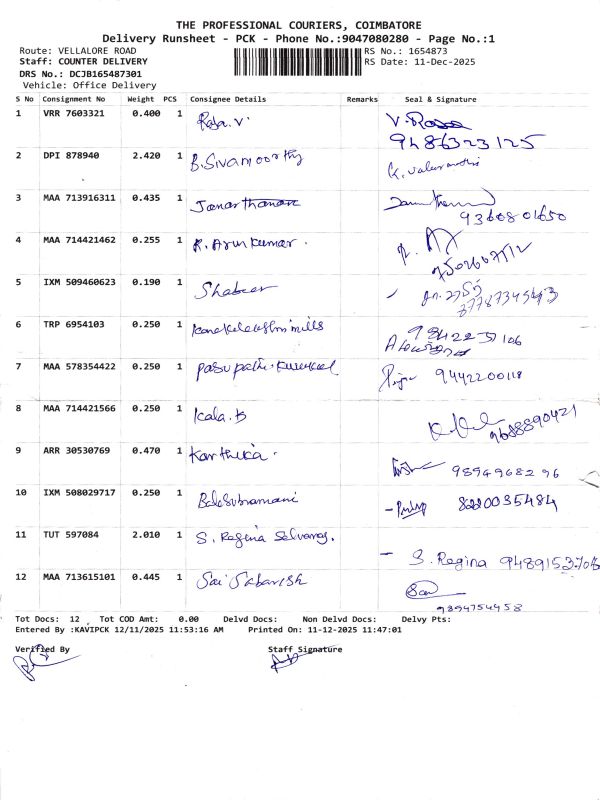 THE PROFESSIONAL COURIERS, COIMBATORE
Delivery Runsheet - PCK - Phone No.:9047080280 - Page No.:1
Route: VELLALORE ROAD RS No.: 1654873
Staff: COUNTER DELIVERY RS Date: 11-Dec-2025
DRS No.: DCJB165487301
Vehicle: Office Delivery
S No Consignment No Weight PCS Consignee Details Remarks Seal & Signature
1 VRR 7603321 0.400 1 Raja.V. V.Raja
9486323125
2 DPI 878940 2.420 1 B.Sivamoorthy
3 MAA 713916311 0.435 1 Janarthanan
9360801650
4 MAA 714421462 0.255 1 R. Arun kumar.
7502607112
5 IXM 509460623 0.190 1 Shabeer
6 TRP 6954103 0.250 1
7 MAA 578354422 0.250 1 9442200118
8 MAA 714421566 0.250 1 kala.B
9688890421
9 ARR 30530769 0.470 1 Karthika. 9894968296
10 IXM 508029717 0.250 1 Balasubramani 8220035484
11 TUT 597084 2.010 1 S. Regina Selvaraj.
S. Regina
12 MAA 713615101 0.445 1 Sai Sabarish
9894754958
Tot Docs: 12 Tot COD Amt: 0.00 Delvd Docs: Non Delvd Docs: Delvy Pts:
Entered By :KAVIPCK 12/11/2025 11:53:16 AM Printed On: 11-12-2025 11:47:01
Verified By Staff Signature